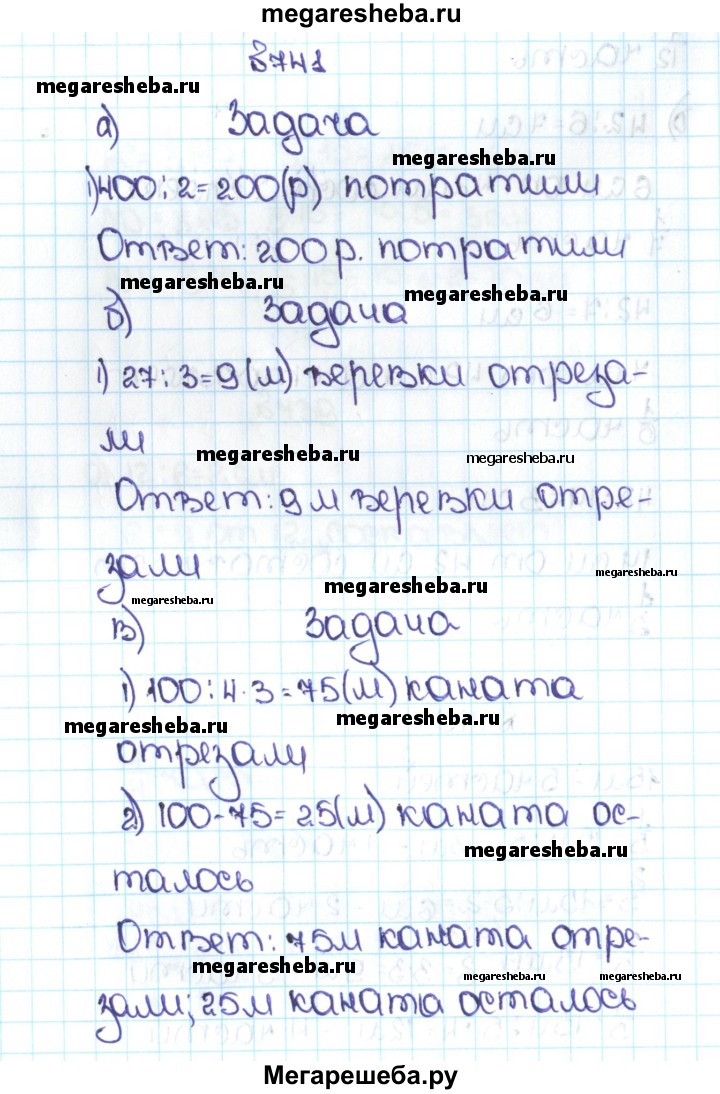 megaresheba.ru
§741
megaresheba.ru
а) Задача
megaresheba.ru
1) 400:2=200(р) потратили
Ответ: 200р. потратили
megaresheba.ru
megaresheba.ru
б) задача
1) 27:3=9(м) веревки отреза-
ли
megaresheba.ru
megaresheba.ru
Ответ: 9м веревки отре-
зали
megaresheba.ru
megaresheba.ru
megaresheba.ru
в) Задача
1) 100:4·3=75(м) каната
megaresheba.ru
megaresheba.ru
отрезали
2) 100-75=25(м) каната ос-
megaresheba.ru
талось
Ответ: 75м каната отре-
megaresheba.ru
megaresheba.ru
megaresheba.ru
зали; 25м каната осталось
Мегарешеба.ру